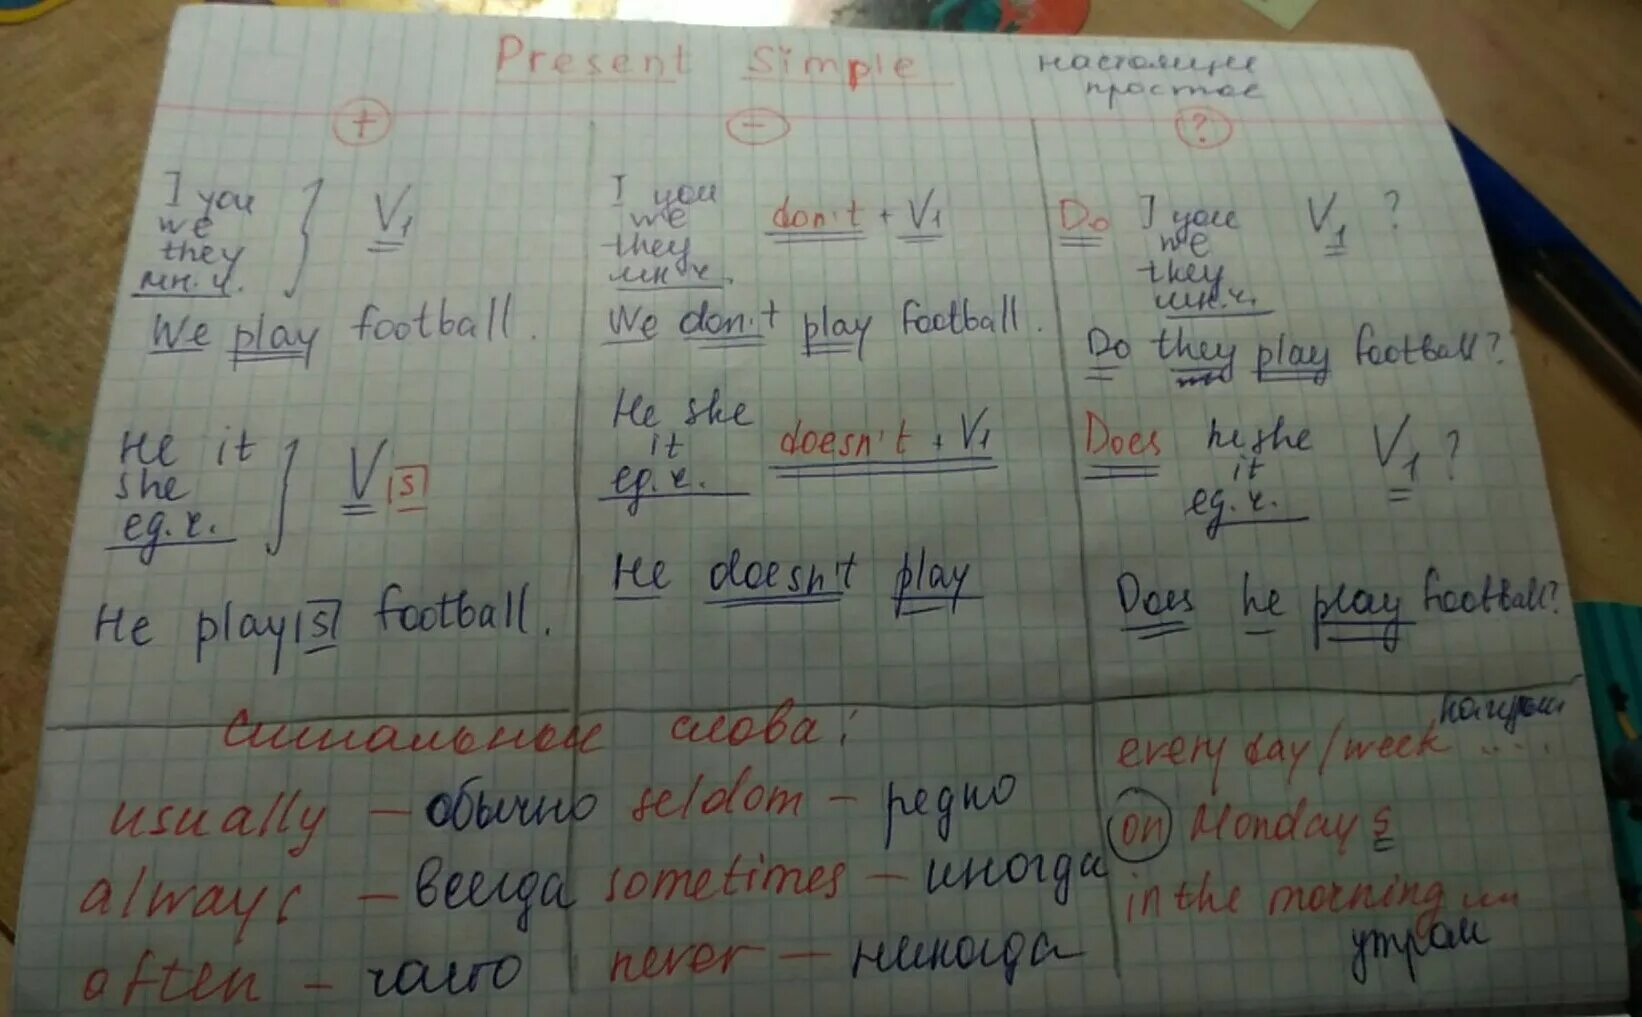 Present Simple настоящее
простое
+
I you
we
they
мн.ч.
V1
We play football.
He it
she
ед.ч.
V s
He play s football.
-
I you
we
they
мн.ч.
don't + V1
We don't play football.
He she
it
ед.ч.
doesn't + V1
He doesn't play
?
Do I you V1 ?
we
they
мн.ч.
Do they play football?
Does he she V1 ?
it
ед.ч.
Does he play football?
Сигнальные слова:
usually – обычно
always – всегда
often – часто
seldom – редко
sometimes – иногда
never – никогда
every day/week ....
on Mondays
in the morning
утром